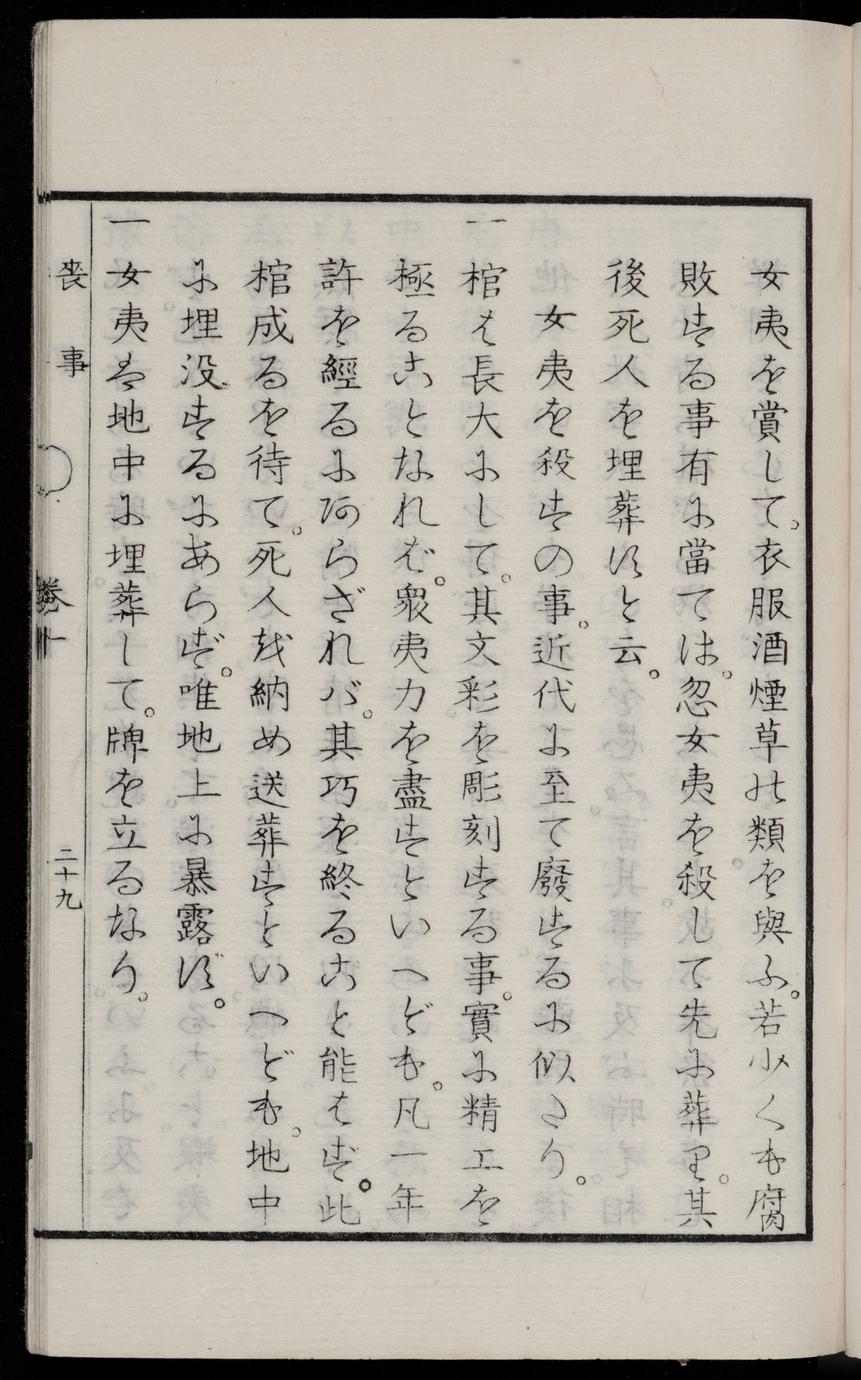 女夷を賞して。衣服酒煙草の類を與ふ。若少くも腐
敗する事有に當ては。忽女夷を殺して先に葬り。其
後死人を埋葬すと云。
女夷を殺すの事。近代に至て廢するに似たり。
一棺は長大にして。其文彩を彫刻する事。實に精工を
極ることなれば。衆夷力を盡すといへども。凡一年
許を經るにあらざれバ。其巧を終ること能はず。此
棺成るを待て。死人を納め送葬すといへども。地中
に埋没するにあらず。唯地上に暴露す。
一女夷は地中に埋葬して。牌を立るなり。
喪事
卷十
二十九